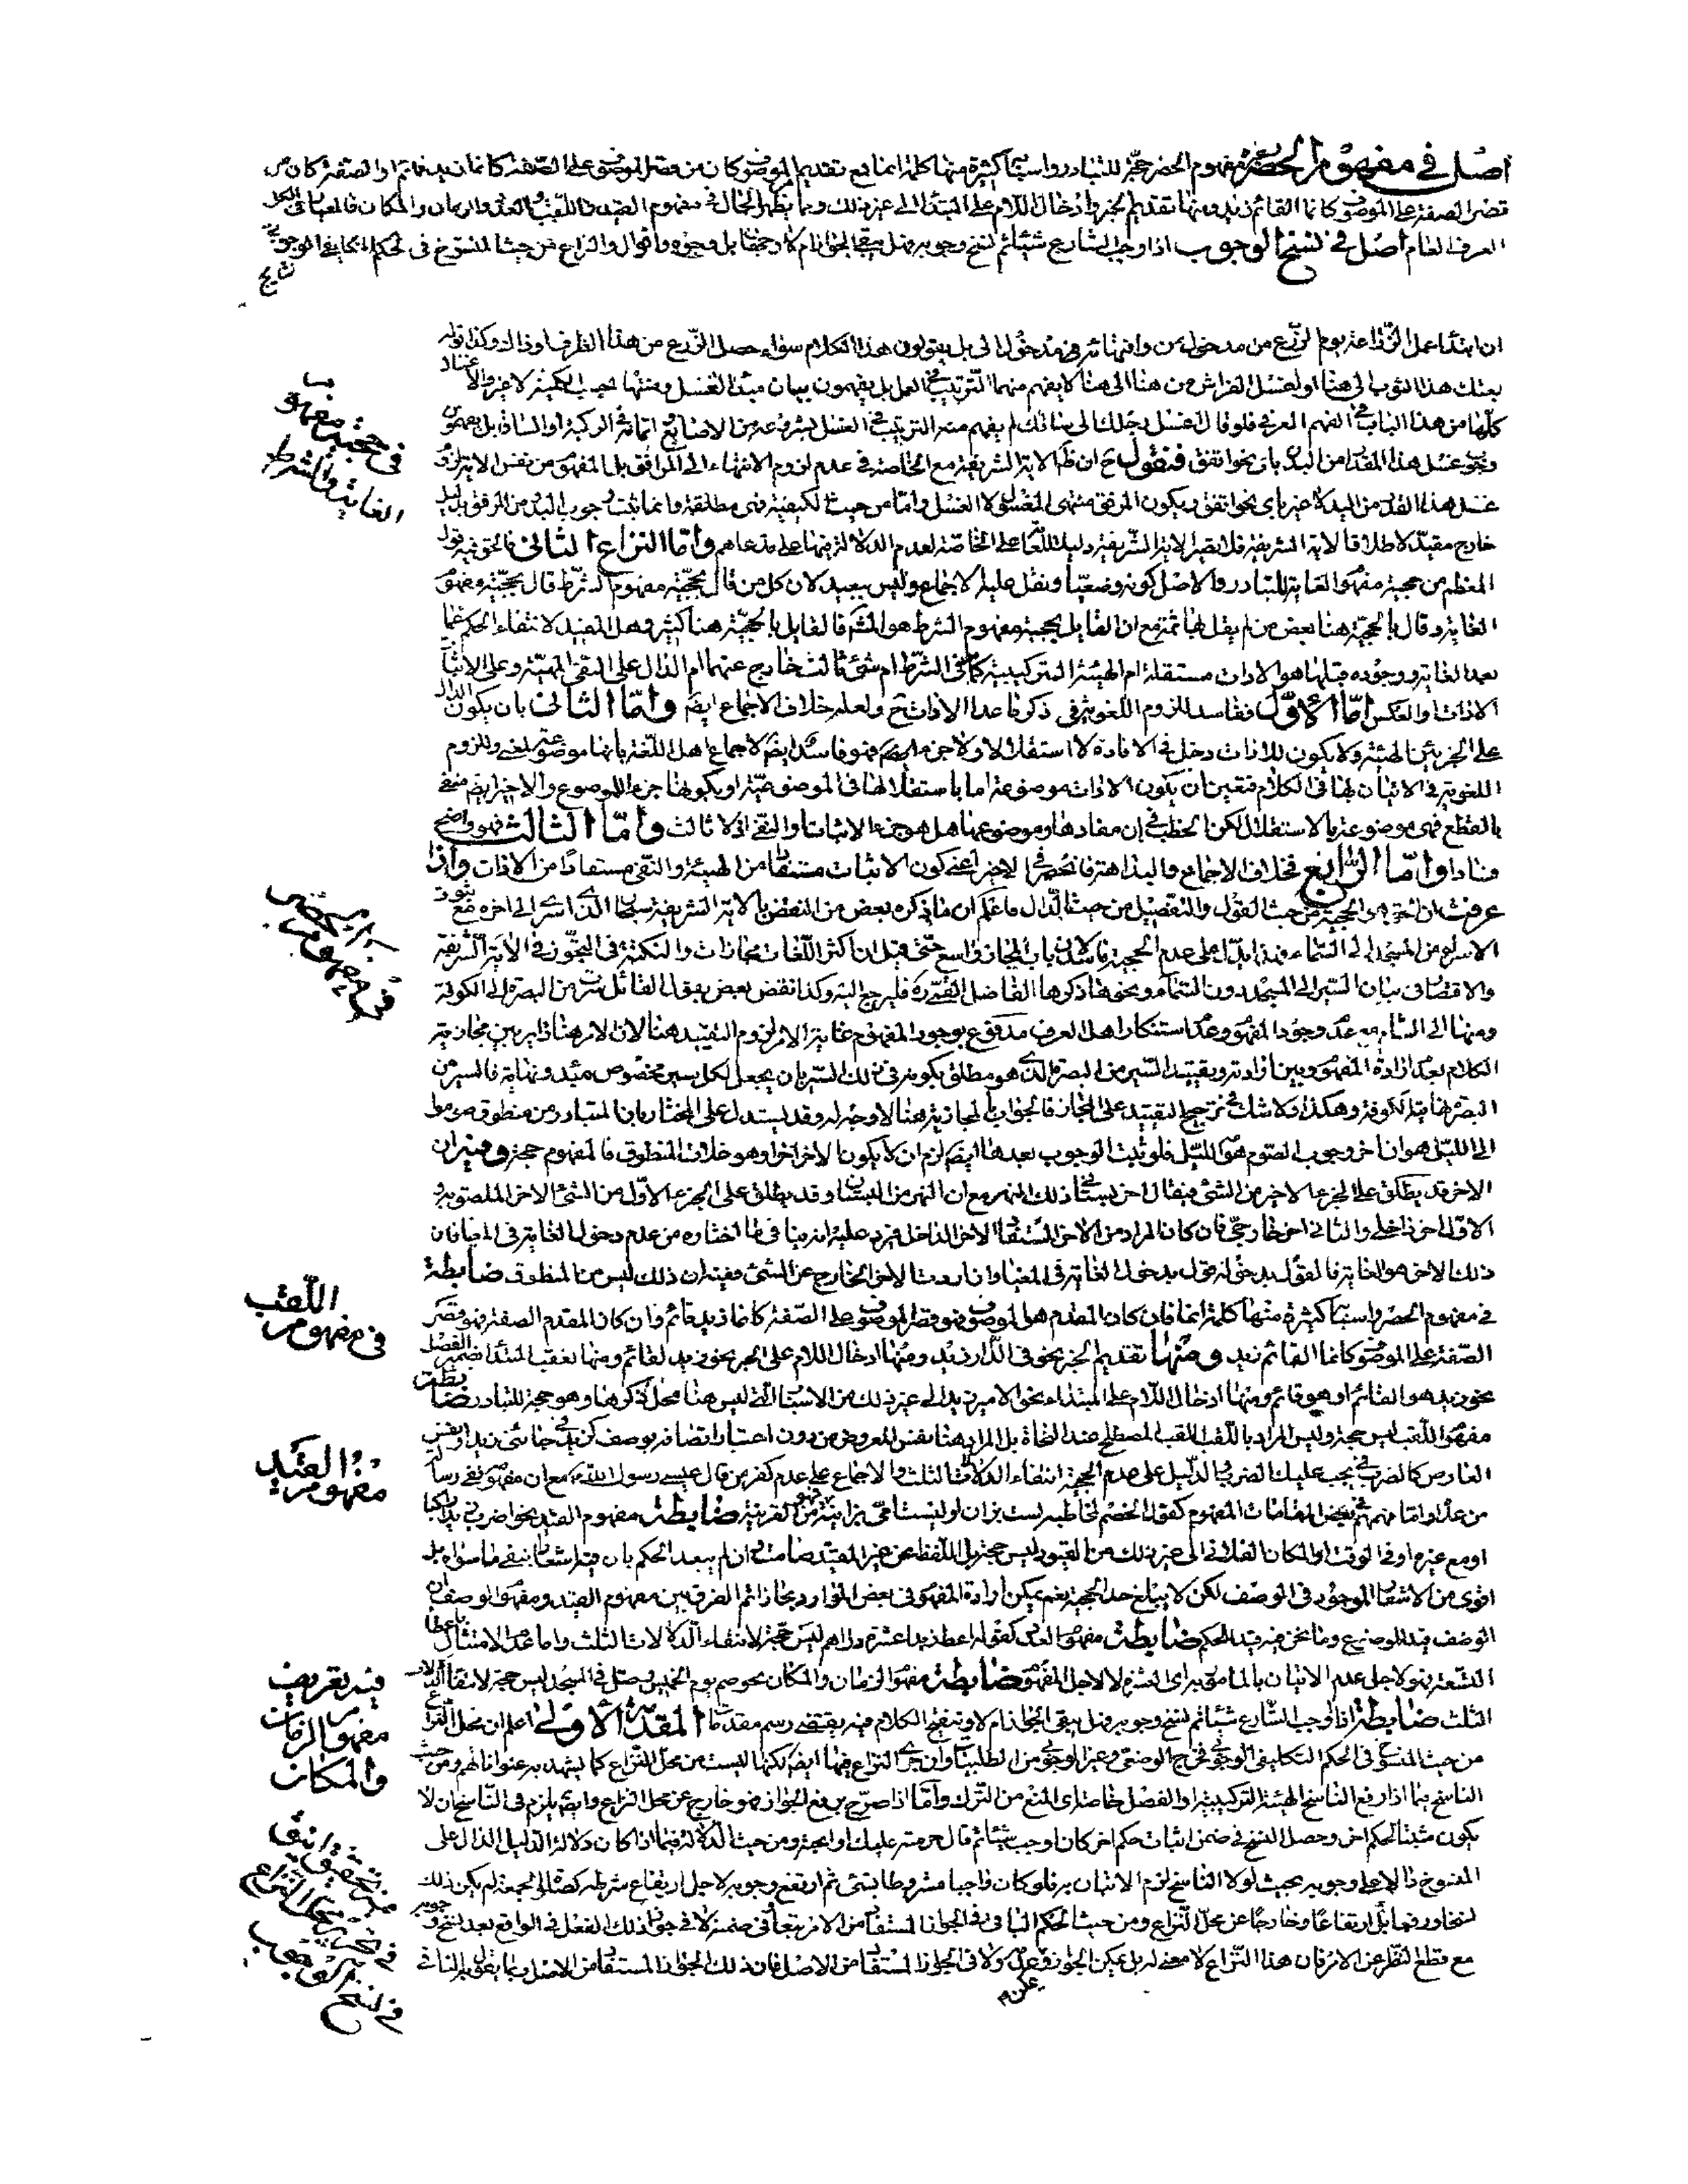 اصل في مفهوم الحصر مفهوم الحصر حجة للتبادر واسبابها كثيرة منها كلمة انما فمع تقديم الموصوف كان من قصر الموصوف على الصفة كانما زيد قائم او الصفة كان من
قصر الصفة على الموصوف كانما القائم زيد ومنها تقديم الخبر وادخال اللام على المبتدا الى غير ذلك وبما يظهر الحال في مفهوم القيد واللقب والعدد والزمان والمكان فالمعيار في الكل
العرف العام اصل في نسخ الوجوب اذا اوجب الشارع شيئا ثم نسخ وجوبه فهل يبقى الجواز ام لا وجوه واقوال والنزاع من حيث المنسوخ في الحكم التكليفي الوجوبي
ان ابتداء عمل الزراعة يوم الزرع من مدخول من وانتهائه في مدخول الى بل يقولون هذا الكلام سواء حصل الزرع من هذا الطرف او ذاك وكذا قوله
بعتك هذا الثوب الى هنا او اغسل الفراش من هنا الى هنا لا يفهم منهما الترتيب في العمل بل يفهمون بيان مبدا الغسل ومنتهاه بحسب الكمية لا غير
كلها من هذا الباب في الفهم العرفي فلو قال اغسل رجلك الى ساقك لم يفهم منه الترتيب في الغسل بشروعه من الاصابع
وجوب غسل هذا المقدار من اليد باي نحو اتفق فنقول ح ان ظ الاية الشريفة مع الخاصة في عدم لزوم الانتهاء الى المرافق بل المفهوم من نفس الاية لزوم
غسل هذا القدر من اليد لا غير باي نحو اتفق ويكون المرفق منتهى المغسول لا الغسل واما من حيث الكيفية فهي مطلقة وانما ثبت وجوب البدء من المرفق بدليل
خارج مقيد لاطلاق الاية الشريفة فلا تصير الاية الشريفة دليلا للعامة على الخاصة لعدم الدلالة فيها على مدعاهم واما النزاع الثاني فالحق فيه قول
المعظم من حجية مفهوم الغاية للتبادر والاصل كونه وضعيا ونقل عليه الاجماع وليس ببعيد لان كل من قال بحجية مفهوم الشرط قال بحجية مفهوم
الغاية وقال بالحجية هنا بعض من لم يقل بها ثمة مع ان القايل بحجية مفهوم الشرط هو المشهور فالقايل بالحجية هنا كثير وهل المفيد لانتفاء الحكم عما
بعد الغاية ووجوده قبلها هو الادات مستقلة ام الهيئة التركيبية كما في الشرط ام شيء ثالث خارج عنهما ام الدال على النفي الهيئة وعلى الاثبات
الادات او العكس اما الاول ففاسد للزوم اللغوية في ذكر ما عدا الادات ح ولعله خلاف الاجماع ايضا واما الثاني بان يكون الدال
على الجزئين الهيئة ولا يكون للادات دخل في الافادة لا استقلالا ولا جزء ايضا فهو فاسد ايضا لاجماع اهل اللغة بانها موضوعة لمعنى وللزوم
اللغوية في الاتيان بها في الكلام فتعين ان يكون الادات موضوعة اما باستقلالها في الموضوعية او بكونها جزء الموضوع والاخير ايضا منفي
بالقطع فهي موضوعة بالاستقلال لكن الخطب في ان مفادها وموضوعها هل هو جزء الاثبات او النفي اذ لا ثالث واما الثالث فهو واضح
فسادا واما الرابع فخلاف الاجماع والبداهة فانحصر في الاخير اعني كون الاثبات مستفادا من الهيئة والنفي مستفادا من الادات واذا
عرفت ان الحق هو الحجية من حيث القول والتفصيل من حيث الدال فاعلم ان ما ذكره بعض من النقض بالاية الشريفة سبحان الذي اسرى الى اخره مع
الاسراء من المسجد الى السماء وهذا يدل على عدم الحجية فاسد لان باب المجاز واسع حتى قيل ان اكثر اللغات مجازات والنكتة في التجوز في الاية الشريفة
والاقتصار في بيان السير الى المسجد دون السماء ونحوها ذكرها الفاضل القمي ره فليرجع اليه وكذا نقض بعض بقول القائل سرت من البصرة الى الكوفة
ومنها الى الشام وعدم استنكار اهل العرف مدفوع بوجود المفهوم غاية الامر لزوم التقييد هنا لان الامر هنا داير بين مجازية
الكلام بعدم ارادة المفهوم وبين ارادته وتقييد السير من البصرة الذي هو مطلق بان يجعل لكل سير مخصوص مبدء ونهاية فالسير من
البصرة نهايته الكوفة وهكذا ولا شك في ترجيح التقييد على المجاز فالجواب بالمجازية هنا لا وجه له وقد يستدل على المختار بان المتبادر من منطوق صوموا
الى الليل هو ان اخر وجوب الصوم هو الليل فلو ثبت الوجوب بعدها ايضا لزم ان لا يكون الاخر اخرا وهو خلاف المنطوق فالمفهوم حجة وفيه ان
الاخر قد يطلق على الجزء الاخير من الشيء فيقال اخر بستاني ذلك النهر مع ان النهر من البستان وقد يطلق على الجزء الاول من الشيء الاخر الملصق به
الاول اخر داخلي والثاني اخر خارجي فان كان المراد من الاخر المستفاد الاخر الداخل فيرد عليه انه ينافي ما اختاره من عدم دخول الغاية في المغيا فان
ذلك الاخر هو الغاية فالقول بدخوله قول بدخول الغاية في المغيا وان اردت الاخر الخارج عن الشيء ففيه ان ذلك ليس من المنطوق ضابطة
في مفهوم الحصر واسبابه كثيرة منها كلمة انما فان كان المقدم هو الموصوف فهو قصر الموصوف على الصفة كانما زيد قائم وان كان المقدم الصفة فهو قصر
الصفة على الموصوف كانما القائم زيد ومنها تقديم الخبر نحو في الدار زيد ومنها ادخال اللام على الخبر نحو زيد القائم ومنها تعقيب المبتدا بضمير الفصل
نحو زيد هو القائم او هو قائم ومنها ادخال اللام على المبتداء نحو الامير زيد الى غير ذلك من الاسباب التي ليس هنا محل ذكرها وهو حجة للتبادر ضابطة
مفهوم اللقب ليس حجة وليس المراد باللقب اللقب المصطلح عند النحاة بل المراد هنا نفس المعروض من دون اعتبار اتصافه بوصف كزيد في جائني زيد او نفس
العارض كالضرب في يجب عليك الضرب لنا الدليل على عدم الحجية انتفاء الدلالات الثلث والاجماع على عدم كفر من قال عيسى رسول الله مع ان مفهومه نفي رسالة
من عداه واما فهم في بعض المقامات المفهوم كقول الخصم لمخاطبه لست بزان او ليست امي بزانية فهو من القرينة ضابطة مفهوم القيد نحو اضرب زيدا راكبا
او مع غيره او في الوقت او المكان الفلاني الى غير ذلك من القيود ليس حجة بل اللفظ عن غير المقيد صامت وان لم يبعد الحكم بان فيه اشعارا بنفي ما سواه بل
اقوى من الاشعار الموجود في الوصف لكن لا يبلغ حد الحجية نعم يمكن ارادة المفهوم في بعض الموارد مجازا ثم الفرق بين مفهوم القيد ومفهوم الوصف ان
الوصف قيد للموضوع وما نحن فيه قيد للحكم ضابطة مفهوم العدد كقوله اعط زيدا عشرة دراهم ليس حجة لانتفاء الدلالات الثلث واما عدم الامتثال باعطاء
التسعة فهو لاجل عدم الاتيان بالمامور به اي العشرة لا لاجل المفهوم ضابطة مفهوم الزمان والمكان نحو صم يوم الخميس وصل في المسجد ليس حجة لانتفاء الدلالات
الثلث ضابطة اذا اوجب الشارع شيئا ثم نسخ وجوبه فهل يبقى الجواز ام لا وتنقيح الكلام فيه يقتضي رسم مقدمات المقدمة الاولى اعلم ان محل النزاع
من حيث المنسوخ في الحكم التكليفي الوجوبي فخرج الوضعي وغير الوجوبي من الطلبيات وان جرى النزاع فيها ايضا لكنها ليست من محل النزاع كما يشهد به عنواناتهم ومن حيث
الناسخ بما اذا رفع الناسخ الهيئة التركيبية او الفصل خاصة اي المنع من الترك واما اذا صرح برفع الجواز فهو خارج عن محل النزاع وايضا يلزم في الناسخ ان لا
يكون مثبتا لحكم اخر وحصل النسخ في ضمن اثبات حكم اخر كان اوجب شيئا ثم قال حرمته عليك او ابحته ومن حيث الدلالة فيما اذا كان دلالة الدليل الدال على
المنسوخ دالا على وجوبه بحيث لولا الناسخ لزم الاتيان به فلو كان واجبا مشروطا بشيء ثم ارتفع وجوبه لاجل ارتفاع شرطه كصلوة الجمعة لم يكن ذلك
مع قطع النظر عن الامر فان هذا النزاع لا معنى له
في حجية مفهوم
الغاية والشرط
في مفهوم الحصر
في مفهوم اللقب
مفهوم العدد
فيه تعريف
مفهوم الزمان
والمكان
في نسخ الوجوب